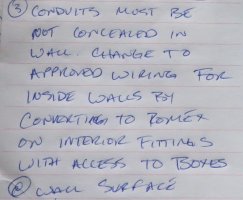 ③ CONDUITS MUST BE
NOT CONCEALED IN
WALL. CHANGE TO
APPROVED WIRING FOR
INSIDE WALLS BY
CONVERTING TO ROMEX
ON INTERIOR FITTINGS
WITH ACCESS TO BOXES
@ WALL SURFACE